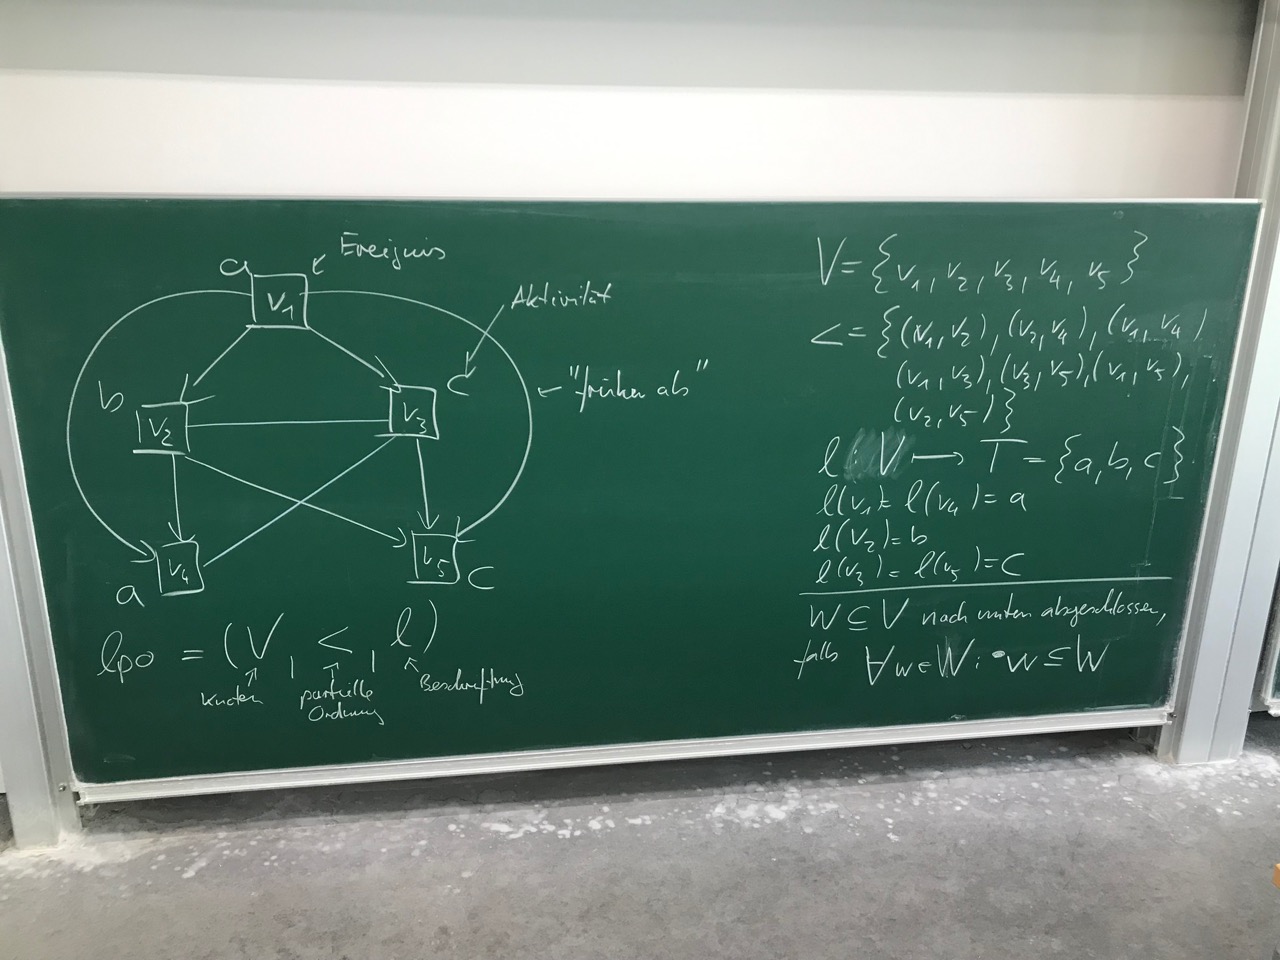 a
Ereignis
v₁
Aktivität
b
c
"früher als"
v₂
v₃
v₄
v₅
a
c
lpo = (V, <, l)
Knoten
partielle
Ordnung
Beschriftung
V = {v₁, v₂, v₃, v₄, v₅}
< = {(v₁, v₂), (v₂, v₄), (v₁, v₄)
(v₁, v₃), (v₃, v₅), (v₁, v₅),
(v₂, v₅)}
l : V ⟼ T = {a, b, c}
l(v₁) = l(v₄) = a
l(v₂) = b
l(v₃) = l(v₅) = c
W ⊆ V nach unten abgeschlossen,
falls ∀w∈W : •w ⊆ W